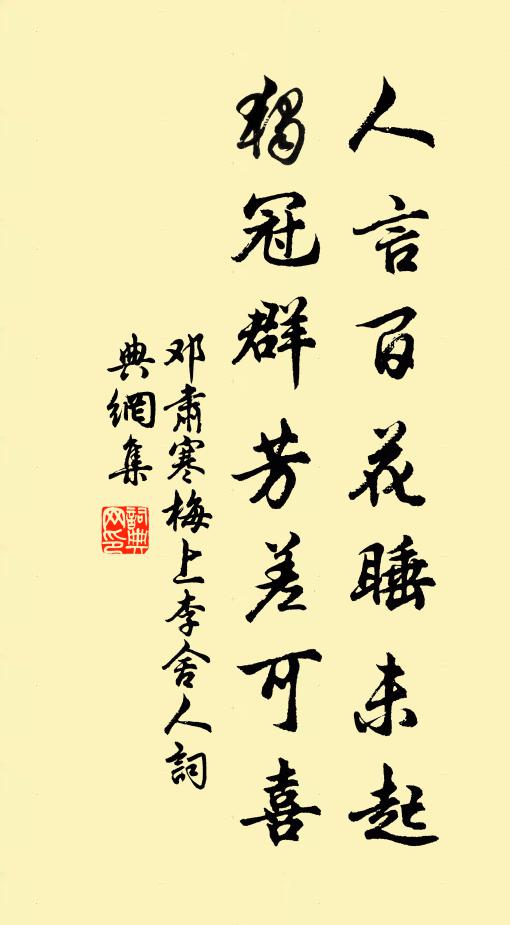 人言百花睡未起
獨冠群芳差可喜
邓肃寒梅上李舍人詞
典網集
詞典
网印